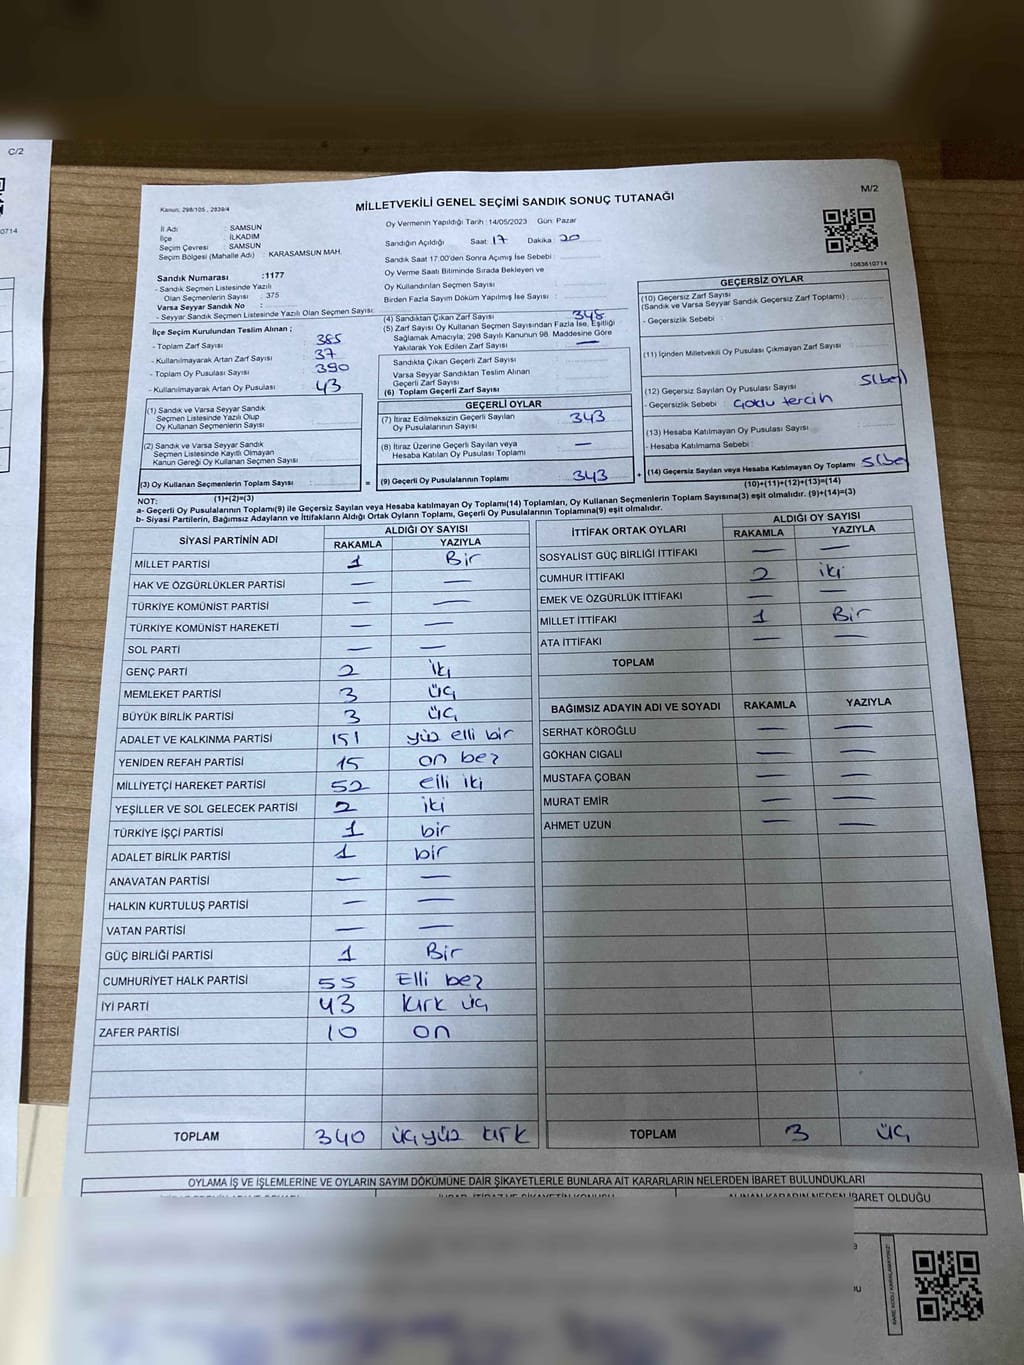 C/2
0714
M/2
Kanun; 298/105 , 2839/4
MİLLETVEKİLİ GENEL SEÇİMİ SANDIK SONUÇ TUTANAĞI
İl Adı : SAMSUN
İlçe : İLKADIM
Seçim Çevresi : SAMSUN
Seçim Bölgesi (Mahalle Adı) : KARASAMSUN MAH.
Sandık Numarası :1177
- Sandık Seçmen Listesinde Yazılı
Olan Seçmenlerin Sayısı : 375
Varsa Seyyar Sandık No :
- Seyyar Sandık Seçmen Listesinde Yazılı Olan Seçmen Sayısı:
İlçe Seçim Kurulundan Teslim Alınan ;
- Toplam Zarf Sayısı 385
- Kullanılmayarak Artan Zarf Sayısı 37
- Toplam Oy Pusulası Sayısı 390
- Kullanılmayarak Artan Oy Pusulası 43
(1) Sandık ve Varsa Seyyar Sandık
Seçmen Listesinde Yazılı Olup
Oy Kullanan Seçmenlerin Sayısı
(2) Sandık ve Varsa Seyyar Sandık
Seçmen Listesinde Kayıtlı Olmayan
Kanun Gereği Oy Kullanan Seçmen Sayısı
(3) Oy Kullanan Seçmenlerin Toplam Sayısı =
(1)+(2)=(3)
Oy Vermenin Yapıldığı Tarih : 14/05/2023 Gün: Pazar
Sandığın Açıldığı Saat: 17 Dakika: 20
Sandık Saat 17:00'den Sonra Açılmış İse Sebebi :
Oy Verme Saati Bitiminde Sırada Bekleyen ve
Oy Kullandırılan Seçmen Sayısı :
Birden Fazla Sayım Döküm Yapılmış İse Sayısı :
(4) Sandıktan Çıkan Zarf Sayısı 348
(5) Zarf Sayısı Oy Kullanan Seçmen Sayısından Fazla İse, Eşitliği
Sağlamak Amacıyla; 298 Sayılı Kanunun 98. Maddesine Göre
Yakılarak Yok Edilen Zarf Sayısı —
Sandıkta Çıkan Geçerli Zarf Sayısı
Varsa Seyyar Sandıktan Teslim Alınan
Geçerli Zarf Sayısı
(6) Toplam Geçerli Zarf Sayısı
GEÇERLİ OYLAR
(7) İtiraz Edilmeksizin Geçerli Sayılan
Oy Pusulalarının Sayısı 343
(8) İtiraz Üzerine Geçerli Sayılan veya
Hesaba Katılan Oy Pusulası Toplamı —
(9) Geçerli Oy Pusulalarının Toplamı 343 +
1083610714
GEÇERSİZ OYLAR
(10) Geçersiz Zarf Sayısı
(Sandık ve Varsa Seyyar Sandık Geçersiz Zarf Toplamı) :
- Geçersizlik Sebebi :
(11) İçinden Milletvekili Oy Pusulası Çıkmayan Zarf Sayısı
(12) Geçersiz Sayılan Oy Pusulası Sayısı 5(beş)
- Geçersizlik Sebebi : çoklu tercih
(13) Hesaba Katılmayan Oy Pusulası Sayısı
- Hesaba Katılmama Sebebi :
(14) Geçersiz Sayılan veya Hesaba Katılmayan Oy Toplamı 5(beş
(10)+(11)+(12)+(13)=(14)
NOT:
a- Geçerli Oy Pusulalarının Toplamı(9) ile Geçersiz Sayılan veya Hesaba katılmayan Oy Toplamı(14) Toplamları, Oy Kullanan Seçmenlerin Toplam Sayısına(3) eşit olmalıdır. (9)+(14)=(3)
b- Siyasi Partilerin, Bağımsız Adayların ve İttifakların Aldığı Ortak Oyların Toplamı, Geçerli Oy Pusulalarının Toplamına(9) eşit olmalıdır.
SİYASİ PARTİNİN ADI ALDIĞI OY SAYISI
RAKAMLA YAZIYLA
MİLLET PARTİSİ 1 Bir
HAK VE ÖZGÜRLÜKLER PARTİSİ — —
TÜRKİYE KOMÜNİST PARTİSİ — —
TÜRKİYE KOMÜNİST HAREKETİ — —
SOL PARTİ — —
GENÇ PARTİ 2 iki
MEMLEKET PARTİSİ 3 üç
BÜYÜK BİRLİK PARTİSİ 3 üç
ADALET VE KALKINMA PARTİSİ 151 yüz elli bir
YENİDEN REFAH PARTİSİ 15 on beş
MİLLİYETÇİ HAREKET PARTİSİ 52 elli iki
YEŞİLLER VE SOL GELECEK PARTİSİ 2 iki
TÜRKİYE İŞÇİ PARTİSİ 1 bir
ADALET BİRLİK PARTİSİ 1 bir
ANAVATAN PARTİSİ — —
HALKIN KURTULUŞ PARTİSİ — —
VATAN PARTİSİ — —
GÜÇ BİRLİĞİ PARTİSİ 1 Bir
CUMHURİYET HALK PARTİSİ 55 Elli beş
İYİ PARTİ 43 kırk üç
ZAFER PARTİSİ 10 on
TOPLAM 340 üçyüz kırk
İTTİFAK ORTAK OYLARI ALDIĞI OY SAYISI
RAKAMLA YAZIYLA
SOSYALİST GÜÇ BİRLİĞİ İTTİFAKI — —
CUMHUR İTTİFAKI 2 iki
EMEK VE ÖZGÜRLÜK İTTİFAKI — —
MİLLET İTTİFAKI 1 Bir
ATA İTTİFAKI — —
TOPLAM
BAĞIMSIZ ADAYIN ADI VE SOYADI RAKAMLA YAZIYLA
SERHAT KÖROĞLU — —
GÖKHAN CIGALI — —
MUSTAFA ÇOBAN — —
MURAT EMİR — —
AHMET UZUN — —
TOPLAM 3 üç
OYLAMA İŞ VE İŞLEMLERİNE VE OYLARIN SAYIM DÖKÜMÜNE DAİR ŞİKAYETLERLE BUNLARA AİT KARARLARIN NELERDEN İBARET BULUNDUKLARI
ALINAN KARARIN NEDEN İBARET OLDUĞU